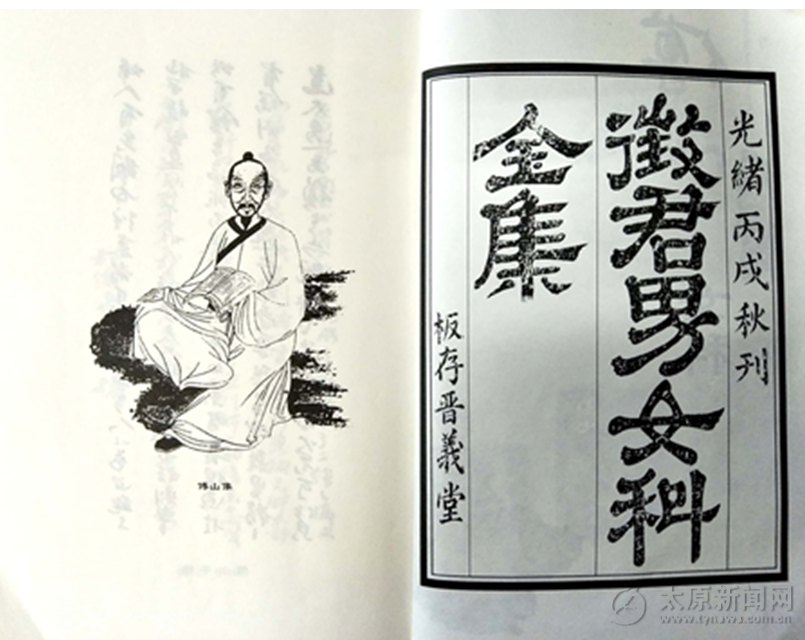 光緒丙戌秋刊
徵君男女科
全集
板存晋義堂
傅山像
太原新闻网
www.tynews.com.cn